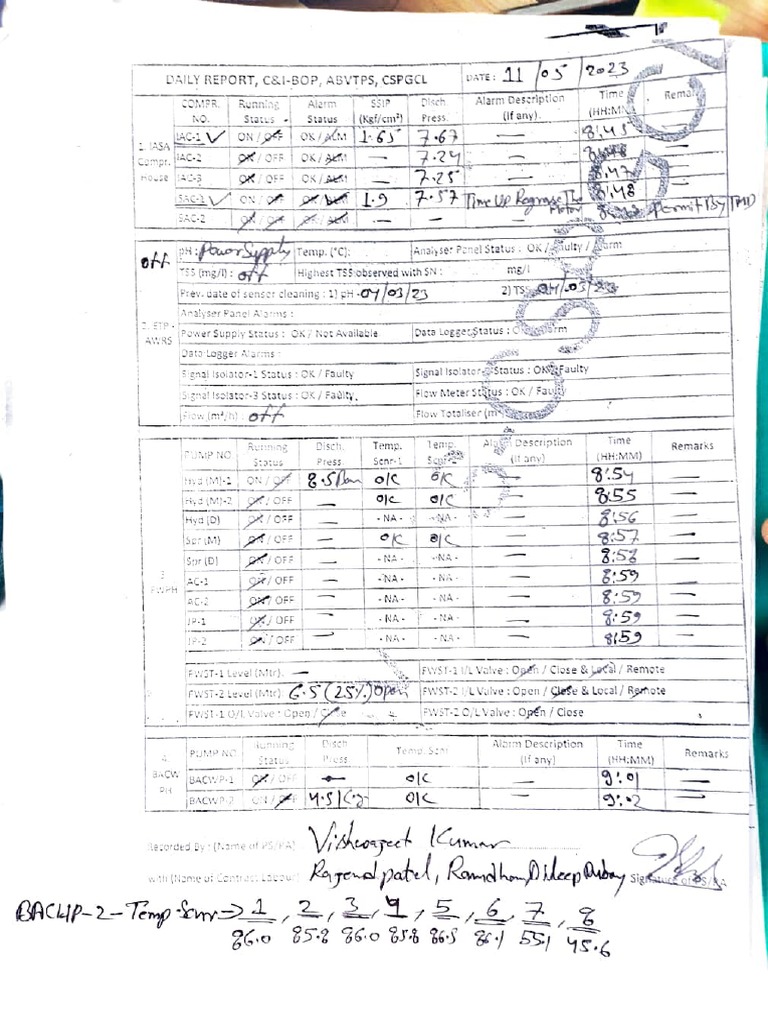 DAILY REPORT, C&I-BOP, ABVTPS, CSPGCL DATE : 11 / 05 / 2023
COMPR. NO. Running Status Alarm Status SSIP (Kgf/cm²) Disch. Press. Alarm Description (If any) Time (HH:MM) Remark
1. IASA Compr. House
IAC-1 ✓ ON / OFF OK / ALM 1.65 7.67 — 8:45 —
IAC-2 ON / OFF OK / ALM — 7.24 — —
IAC-3 ON / OFF OK / ALM — 7.25 — 8:47 —
SAC-1 ✓ ON / OFF OK / ALM 1.9 7.57 Time Up The Motor 8:48 Permit By
SAC-2 ON / OFF OK / ALM — —
2. ETP - AWRS
off pH : Power Supply Temp. (°C): Analyser Panel Status : OK / Faulty / Alarm
TSS (mg/l) : off Highest TSS observed with SN : mg/l
Prev. date of sensor cleaning : 1) pH 04/03/23 2) TSS 04/03/23
Analyser Panel Alarms :
Power Supply Status : OK / Not Available Data Logger Status : OK / Alarm
Data Logger Alarms :
Signal Isolator-1 Status : OK / Faulty Signal Isolator- Status : OK / Faulty
Signal Isolator-3 Status : OK / Faulty Flow Meter Status : OK / Faulty
Flow (m³/h) : off Flow Totaliser (m
PUMP NO Running Status Disch. Press Temp. Scnr-1 Temp. Scnr-2 Alarm Description (If any) Time (HH:MM) Remarks
3. FWPH
Hyd (M)-1 ON / OFF 8.5 Bar O/C O/C — 8:54 —
Hyd (M)-2 ON / OFF — O/C O/C — 8:55 —
Hyd (D) ON / OFF — - NA - - NA - — 8:56 —
Spr (M) ON / OFF — O/C O/C — 8:57 —
Spr (D) ON / OFF — - NA - - NA - — 8:58 —
AC-1 ON / OFF — - NA - - NA - — 8:59 —
AC-2 ON / OFF — - NA - - NA - — 8:59 —
JP-1 ON / OFF — - NA - - NA - — 8:59 —
JP-2 ON / OFF — - NA - - NA - — 8:59 —
FWST-1 Level (Mtr) : — FWST-1 I/L Valve : Open / Close & Local / Remote
FWST-2 Level (Mtr) : 6.5 (25%) Open FWST-2 I/L Valve : Open / Close & Local / Remote
FWST-1 O/L Valve : Open / Close FWST-2 O/L Valve : Open / Close
4. BACW PH
PUMP NO Running Status Disch Press Temp. Scnr Alarm Description (If any) Time (HH:MM) Remarks
BACWP-1 ON / OFF — O/C — 9:01 —
BACWP-2 ON / OFF 4.5 Kg O/C — 9:02 —
Recorded By : (Name of PS/PA) Vishwajeet Kumar
with (Name of Contract Labour) Rajendpatel, Ramdhan, Dileep Dubey Signature of PS/PA
BACWP-2-Temp-Scnr ⇒ 1, 2, 3, 4, 5, 6, 7, 8
86.0 85.8 86.0 85.8 86.5 86.1 55.1 45.6